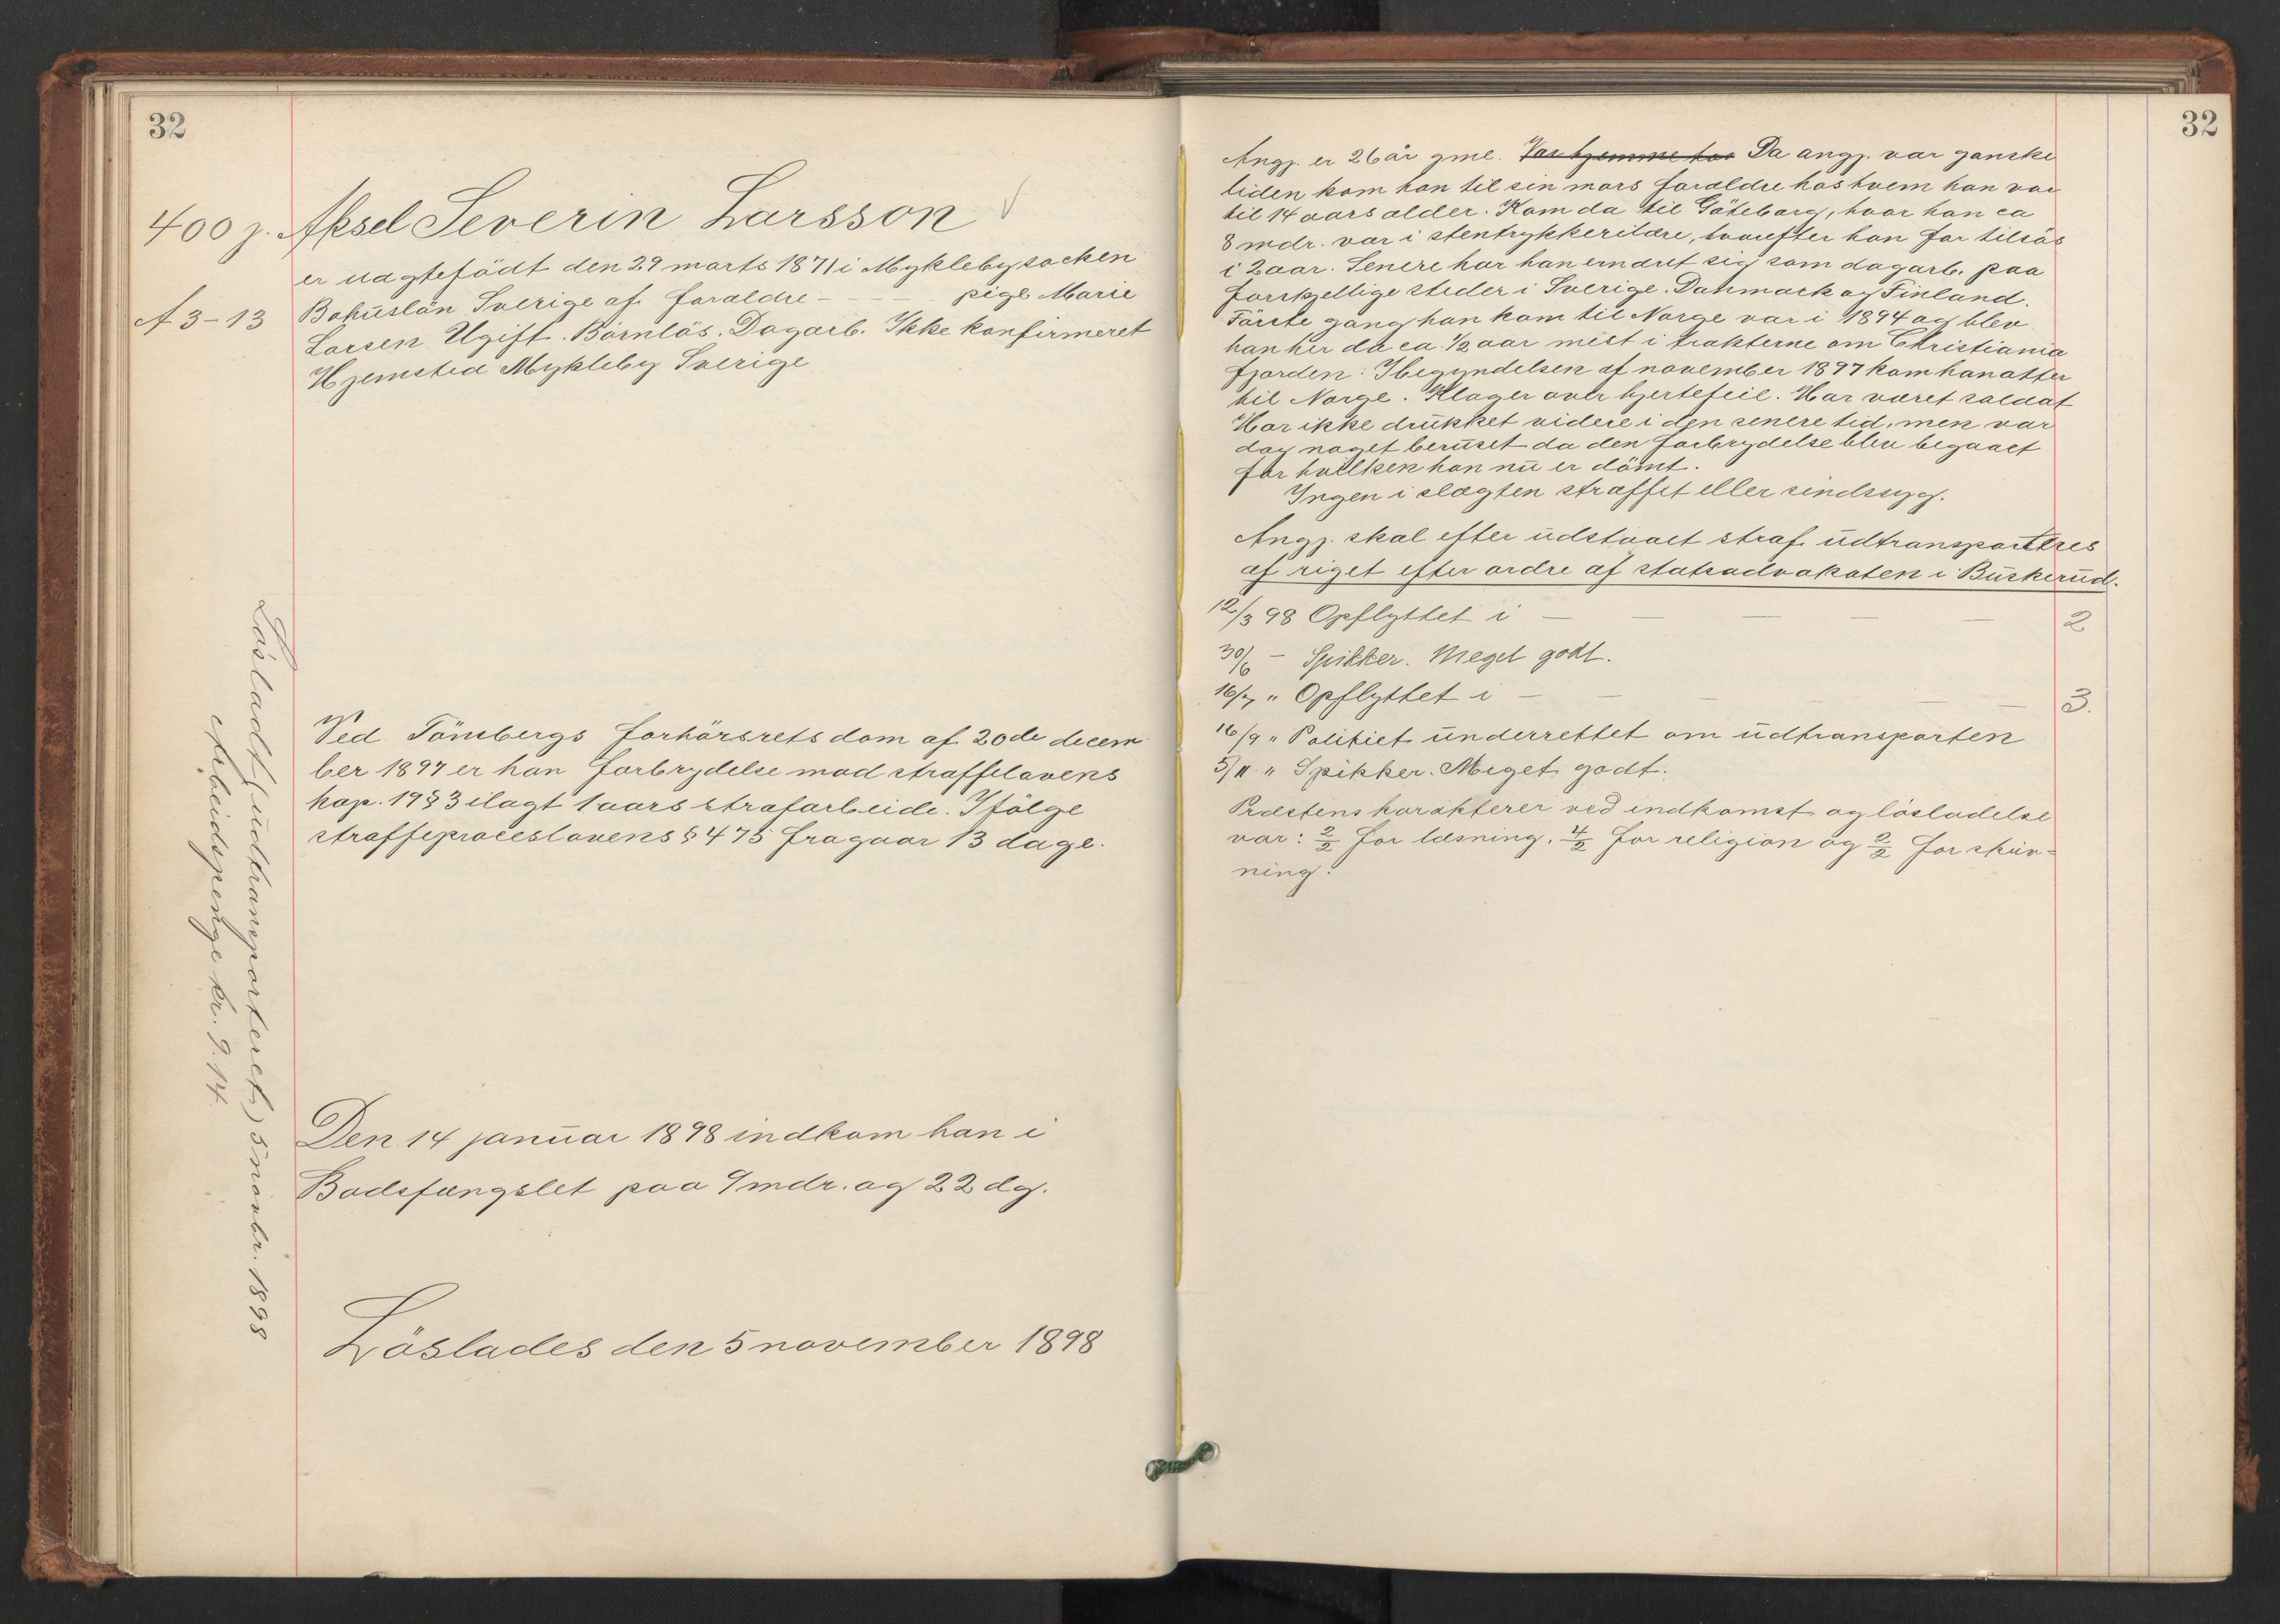 32
400 j. Aksel Severin Larsson
er uagtefödt den 29 marts 1871 i Myklebysocken
A 3-13 Bohuslän Sverige af foraldre - - - - pige Marie
Larsen Ugift. Börnlös. Dagarb. Ikke konfirmeret
Hjemsted Mykleby Sverige
Ved Tönsbergs forhörsrets dom af 20de decem
ber 1897 er han forbrydelse mod straffelovens
kap. 19 § 3 ilagt 1 aars strafarbeide. Ifölge
straffeproceslovens § 475 fragaar 13 dage.
Den 14 januar 1898 indkom han i
Bodsfængslet paa 9 mdr. og 22 dg.
Löslades den 5 november 1898
Lösladt (udtransporteret) 5 novbr. 1898
Arbeidspenge kr. 9.14.
32
Angj. er 26 år gml. Var hjemme hos Da angj. var ganske
liden kom han til sin mors foraldre hos hvem han var
til 14 aars alder. Kom da til Göteborg, hvor han ca
8 mdr. var i stentrykkerilære, hvorefter han for tilsös
i 2 aar. Senere har han ernæret sig som dagarb. paa
forskjellige steder i Sverige. Danmark og Finland.
Förste gang han kom til Norge var i 1894 og blev
han her da ca. 1/2 aar mest i trakterne om Christiania
fjorden. I begyndelsen af november 1897 kom han atter
til Norge. Klager over hjertefeil. Har været soldat
Har ikke drukket videre i den senere tid, men var
dog noget beruset da den forbrydelse blev begaaet
for hvilken han nu er dömt.
Ingen i slægten straffet eller sindssyg.
Angj. skal efter udstaaet straf udtransporteres
af riget efter ordre af statsadvokaten i Buskerud.
12/3 98 Opflyttet i — — — — — 2
30/6 - Spikker. Meget godt.
16/7 " Opflyttet i — — — — — 3.
16/9 " Politiet underrettet om udtransporten
5/11 " Spikker. Meget godt.
Præstens karakterer ved indkomst og lösladelse
var: 2/2 for læsning, 4/2 for religion og 2/2 for skriv-
ning.